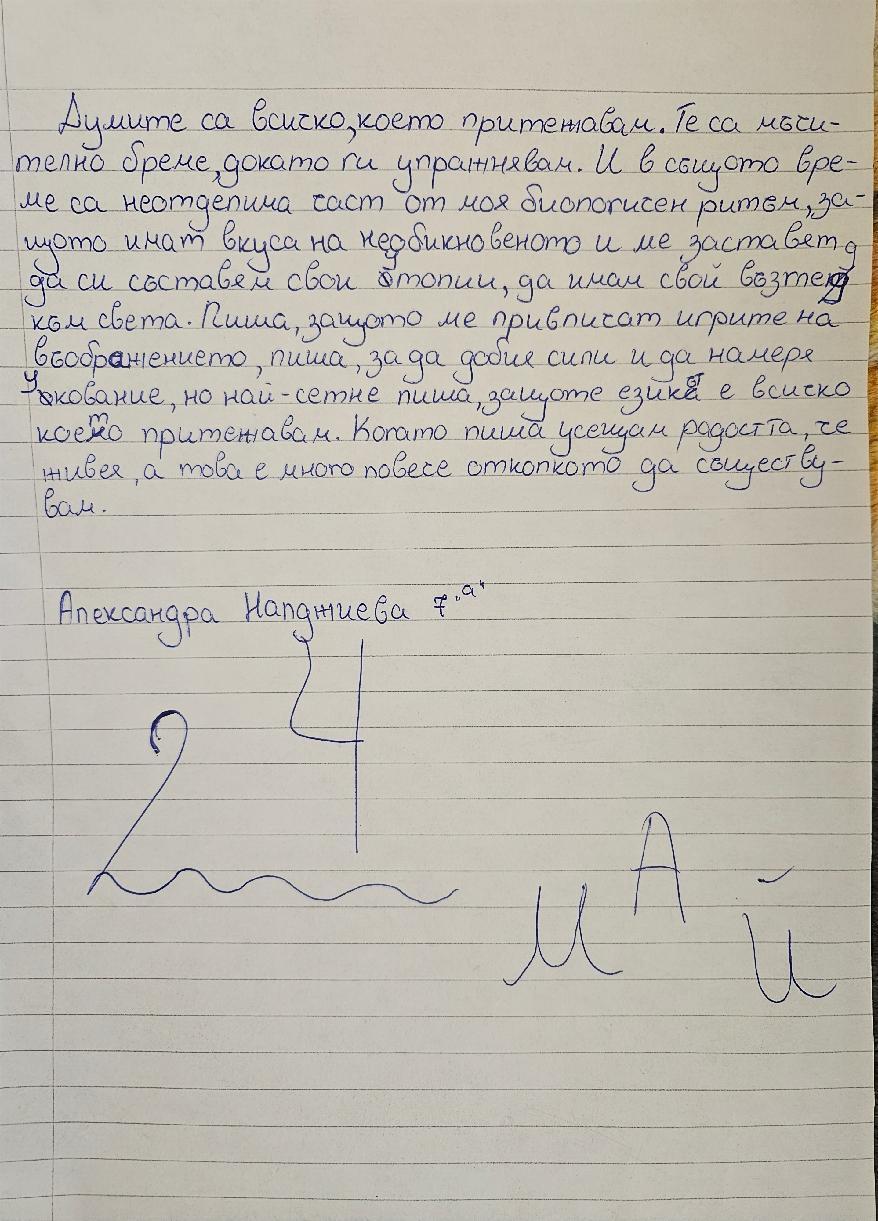 Думите са всичко, което притежавам. Те са мъчи-
телно бреме, докато ги упражнявам. И в същото вре-
ме са неотделима част от моя биологичен ритъм, за-
щото имат вкуса на необикновеното и ме заставят
да си съставям свои утопии, да имам свой възглед
към света. Пиша, защото ме привличат игрите на
въображението, пиша, за да добия сили и да намеря
упование, но най-сетне пиша, защоте езикът е всичко
което притежавам. Когато пиша усещам радостта, че
живея, а това е много повече отколкото да съществу-
вам.
Александра Налджиева 7 "а"
24
МАЙ